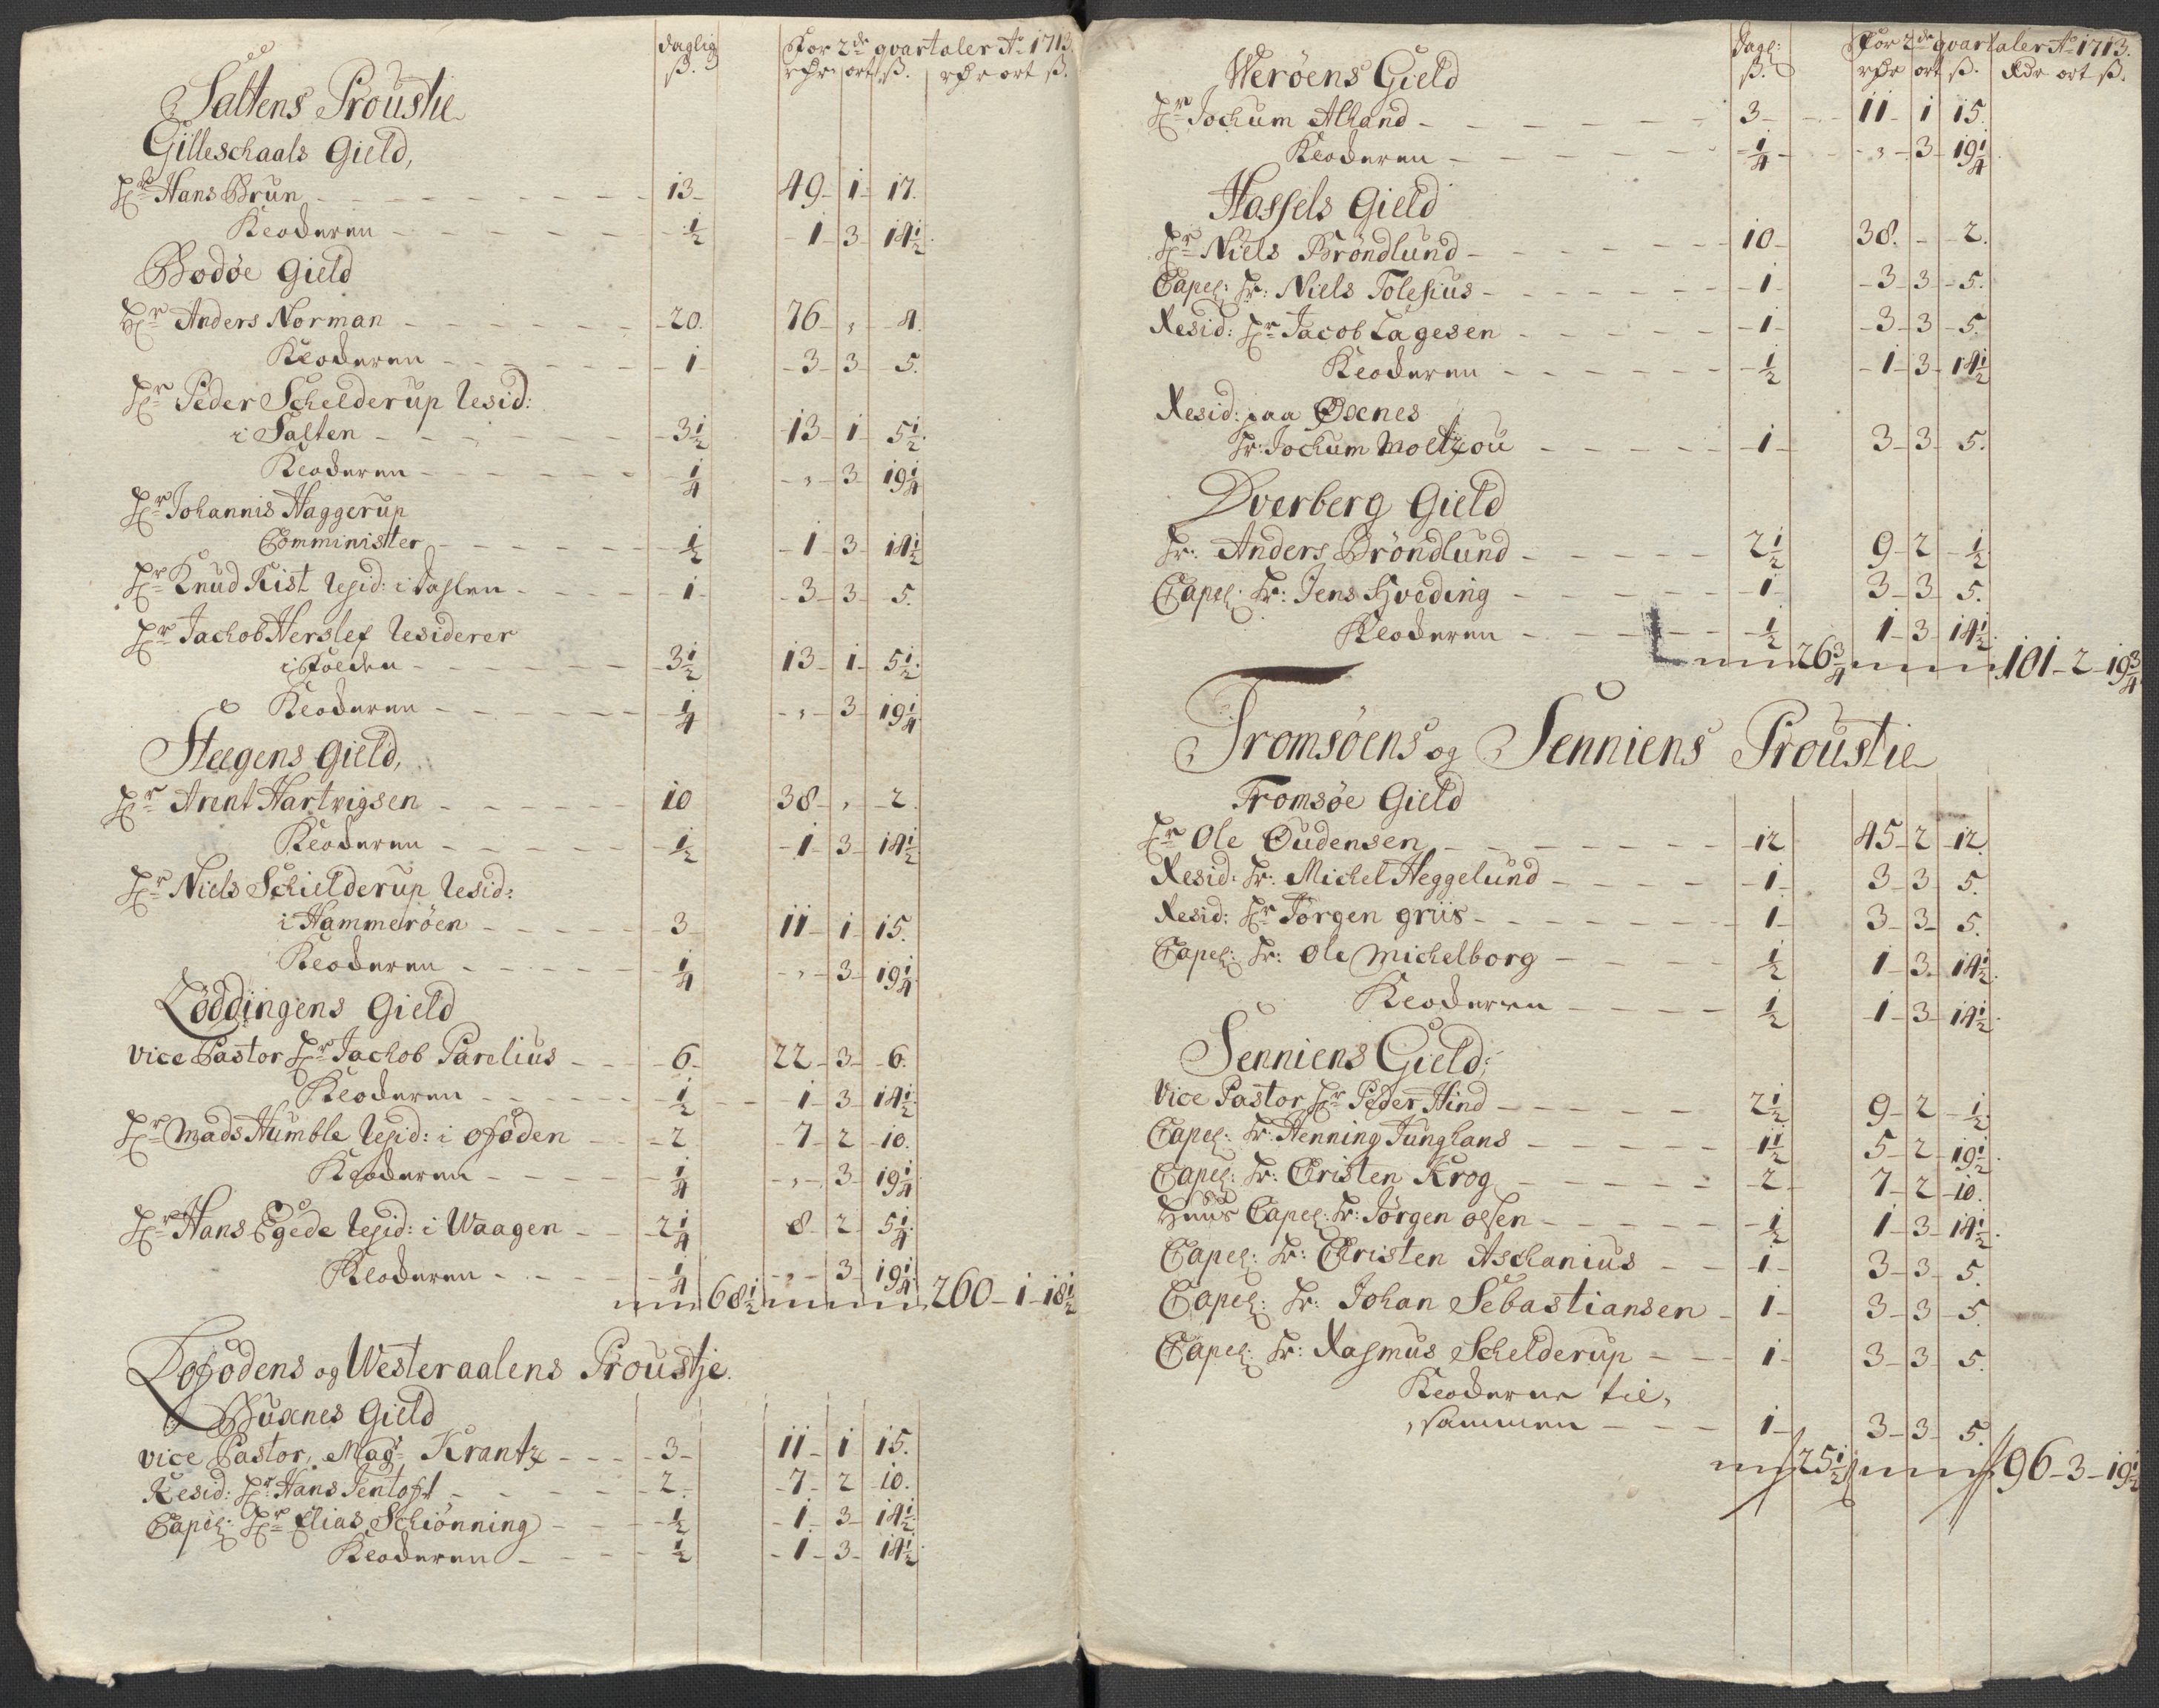 daglig For 2de qvartaler Ao 1713.
ß. rdr ort ß. rdr ort ß.
Saltens Proustie
Gilleschaals Gield,
Hr Hans Brun 13 49 1 17.
Klockeren ½ 1 3 14½
Bodöe Gield
Hr Anders Norman 20. 76 , 4.
Klockeren 1 3 3 5.
Hr Peder Schelderup Resid:
i Salten 3½ 13 1 5½.
Klockeren ¼ , 3 19¼
Hr Johannis Haggerup
Comminister ½ 1 3 14½
Hr Knud Rist Resid: i 1 3 3 5.
Hr Jachob Herslef Residerer
i Folden 3½ 13 1 5½.
Klockeren ¼ , 3 19¼
Steegens Gield,
Hr Arent Hartvigsen 10 38 , 2.
Klockeren ½ 1 3 14½
Hr Niels Schielderup Resid:
i Hammeröen 3 11 1 15.
Klockeren ¼ , 3 19¼
Löddingens Gield
vice Pastor Hr Jachob Parelius 6 22 3 6.
Klockeren ½ 1 3 14½
Hr Mads Humble Resid: i Ofoden 2 7 2 10.
Klockeren ¼ , 3 19¼
Hr Hans Egede Resid: i Waagen 2¼ 8 2 5¼.
Klockeren ¼ , 3 19¼
68½ 260 1 18½
Lofodens og Westeraalens Proustje.
Buxnes Gield
vice Pastor, Magr Krantz 3 11 1 15.
Resid: Hr Hans Jentoft 2 7 2 10.
Capel: Hr Elias Schiönning ½ 1 3 14½
Klockeren ½ 1 3 14½
Dagl: For 2de qvartaler Ao 1713.
ß. rdr ort ß. Rdr ort ß.
Weröens Gield
Hr Jochum Alhand 3 11 1 15.
Klockeren ¼ , 3 19¼
Hassels Gield
Hr Niels Bröndlund 10 38. 2.
Capel: Hr: Niels Tolesius 1 3 3 5.
Resid: Hr Jacob Lagesen 1 3 3 5.
Klockeren ½ 1 3 14½
Resid: paa Öxnes
Hr: Jochum Moltzou 1 3 3 5.
Dverberg Gield
Hr: Anders Bröndlund 2½ 9 2 ½
Capel: Hr: Jens Hveding 1 3 3 5.
Klockeren ½ 1 3 14½
26¾ 101 2 19¾
Tromsöens og Senniens Proustie
Tromsöe Gield
Hr Ole Oudensen 12 45 2 12.
Resid: Hr: Michel Heggelund 1 3 3 5.
Resid: Hr Törgen griis 1 3 3 5.
Capel: Hr: Ole Michelborg ½ 1 3 14½.
Klockeren ½ 1 3 14½.
Senniens Gield;
Vice Pastor Hr Peder Hind 2½ 9 2 ½.
Capel: Hr: Henning Junghans 1½ 5 2 19½.
Capel: Hr: Christen Krog 2 7 2 10.
Huus Capel: Hr: Jörgen olsen ½ 1 3 14½.
Capel: Hr: Christen Aschanius 1 3 3 5.
Capel: Hr: Johan Sebastiansen 1 3 3 5.
Capel: Hr: Rasmus Schelderup 1 3 3 5.
Klockerne til,
,sammen 1 3 3 5.
25½ 96 3 19½